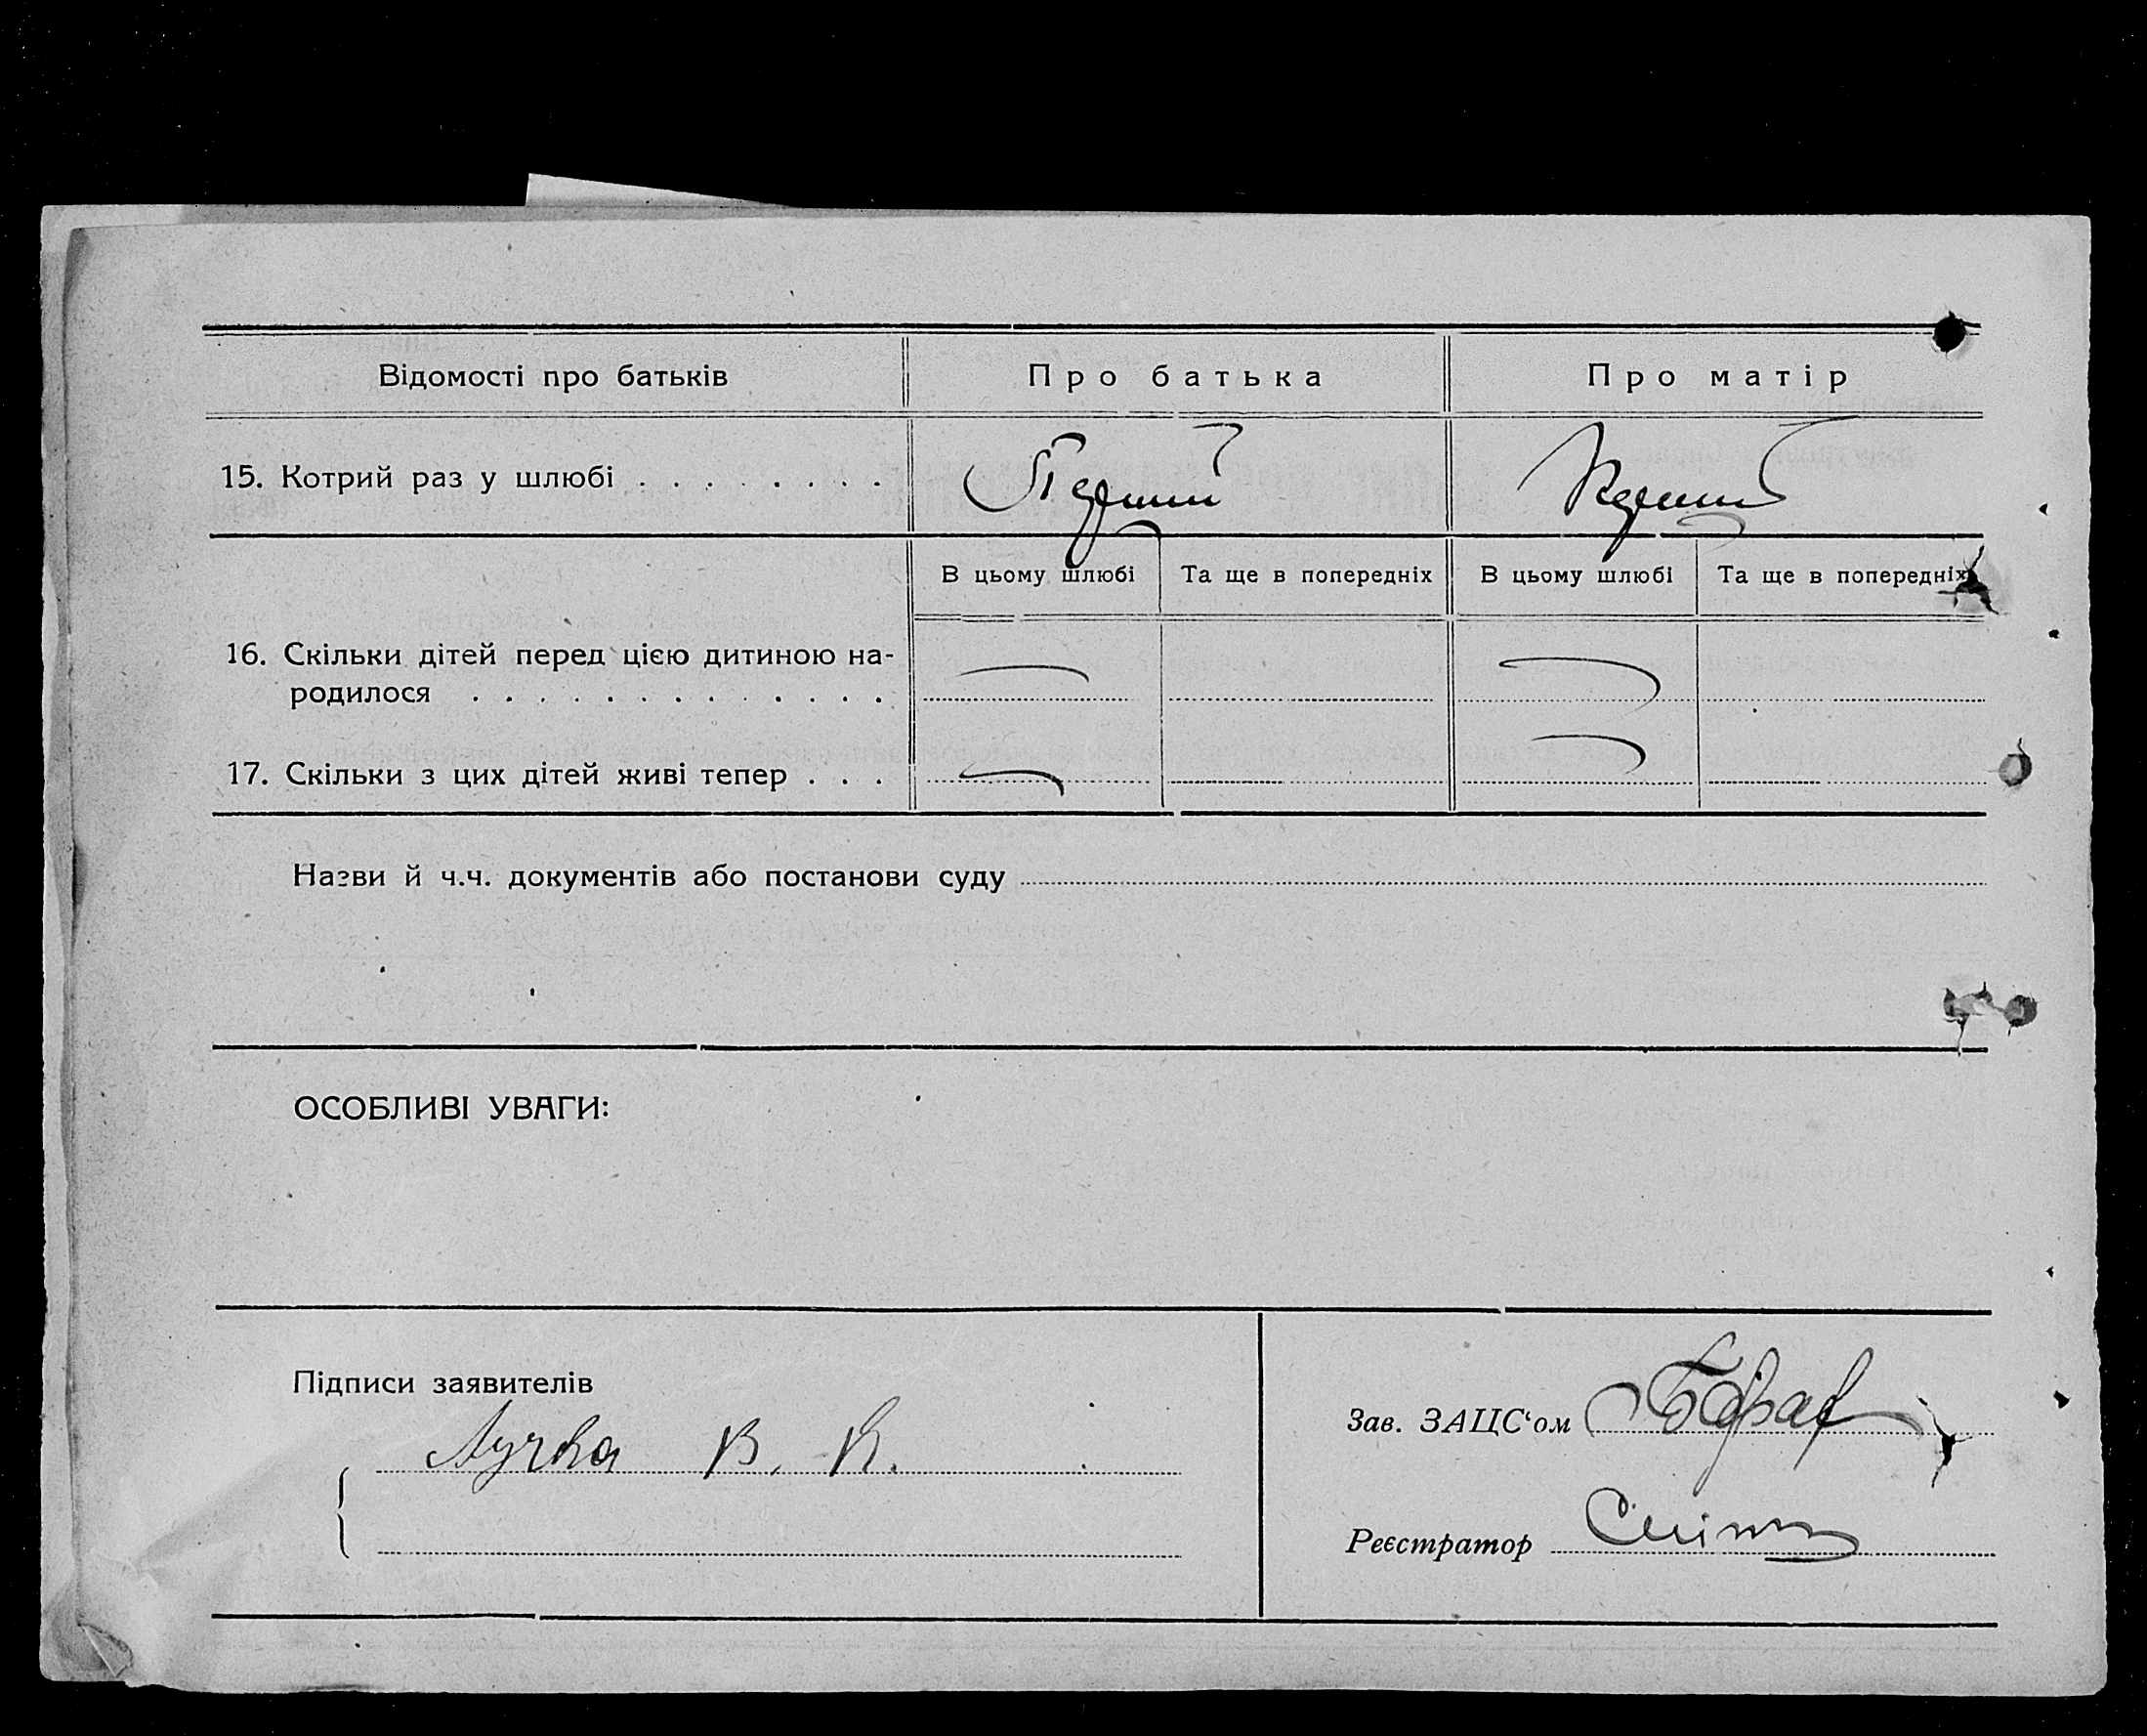 Відомості про батьків
Про батька
Про матір
15. Котрий раз у шлюбі . . . . . . . .
Перший
Перший
В цьому шлюбі
Та ще в попередніх
В цьому шлюбі
Та ще в попередніх
16. Скільки дітей перед цією дитиною на-
родилося . . . . . . . . . . . . .
17. Скільки з цих дітей живі тепер . . .
Назви й ч.ч. документів або постанови суду
ОСОБЛИВІ УВАГИ:
Підписи заявителів
Лучка В. К.
Зав. ЗАЦС‘ом
Реєстратор